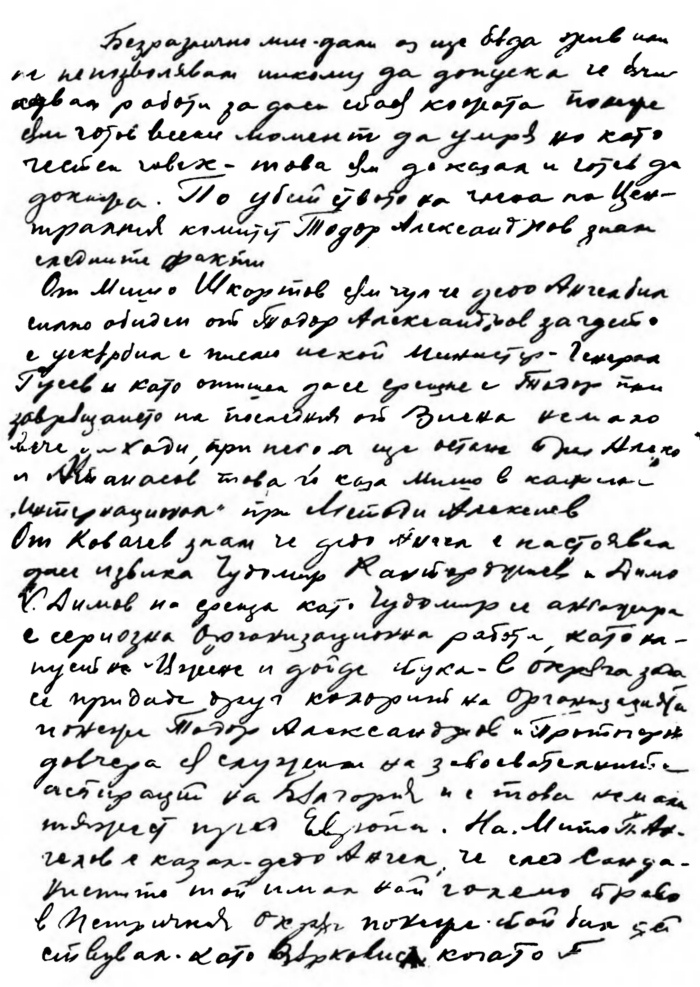 Безразлично ми-дали аз ще бѫда жив или
не непозволявам никому да допуска че съм
работи за да си спася кожата понеже
съм готов всеки момент да умра но като
честен човек - това съм доказал и готов да
докажа. По убийството на члена на Цен-
тралния комитет Тодор Александров знам
следните факти
От Мишо Шкортов съм чул че дедо Ангел бил
силно обиден от Тодор Александров за гдето
е ускърбил с писмо некой Министър - Генерал
и като отишел да се срещне с Тодор при
завръщането на последния от Виена немало
вече да ходи, при него а ще остане Алеко
и Атанасов това го каза Мишо в кафене
„Интернационал" при Методи Алексиев
От Ковачев знам че дедо Ангел е настоявал
да се извика Чудомир Кантарджиев и Димо
х. Димов на среща като Чудомир се ангажира
с сериозна Организационна работа, като на-
пусне и дойде тука - в окръга за да
се придаде друг колорит на Организацията
понеже Тодор Александров и Протогеров
довчера са служили на завоевателните
аспирации на България и с това немали
тяжест пред Европа. На Мишо Ан-
гелов е казал - дедо Ангел, че след Санда-
нистите той имал най големо право
в Петричкия Окръг понеже той бил дей
ствувал като Върховист когато Т